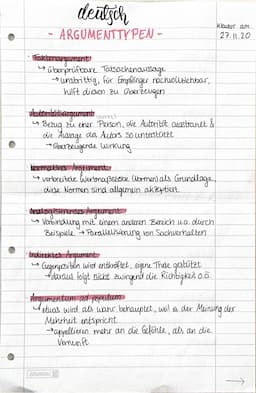 deutsch
- ARGUMENTTYPEN -
Klausur am
27.11.20
Faktenargument
↳ überprüfbare Tatsachenaussage
→ unstrittig, für Empfänger nachvollziehbar,
hilft diesen zu überzeugen
Autoritätsargument
↳ Bezug zu einer Person, die Autorität ausstrahlt &
die Aussage des Autors so unterstützt
→ überzeugende Wirkung
Normatives Argument
↳ verbreitete Wertmaßstäbe (Normen) als Grundlage,
diese Normen sind allgemein akzeptiert
Analogisierendes Argument
↳ Verbindung mit einem anderen Bereich u.a. durch
Beispiele → Parallelisierung von Sachverhalten
Indirektes Argument
↳ Gegenposition wird entkräftet, eigene These gestützt
→ daraus folgt nicht zwingend die Richtigkeit o.ä.
Argumentum ad populum
↳ etwas wird als wahr behauptet, weil es der Meinung der
Mehrheit entspricht
→ appellieren mehr an die Gefühle, als an die
Vernunft
→